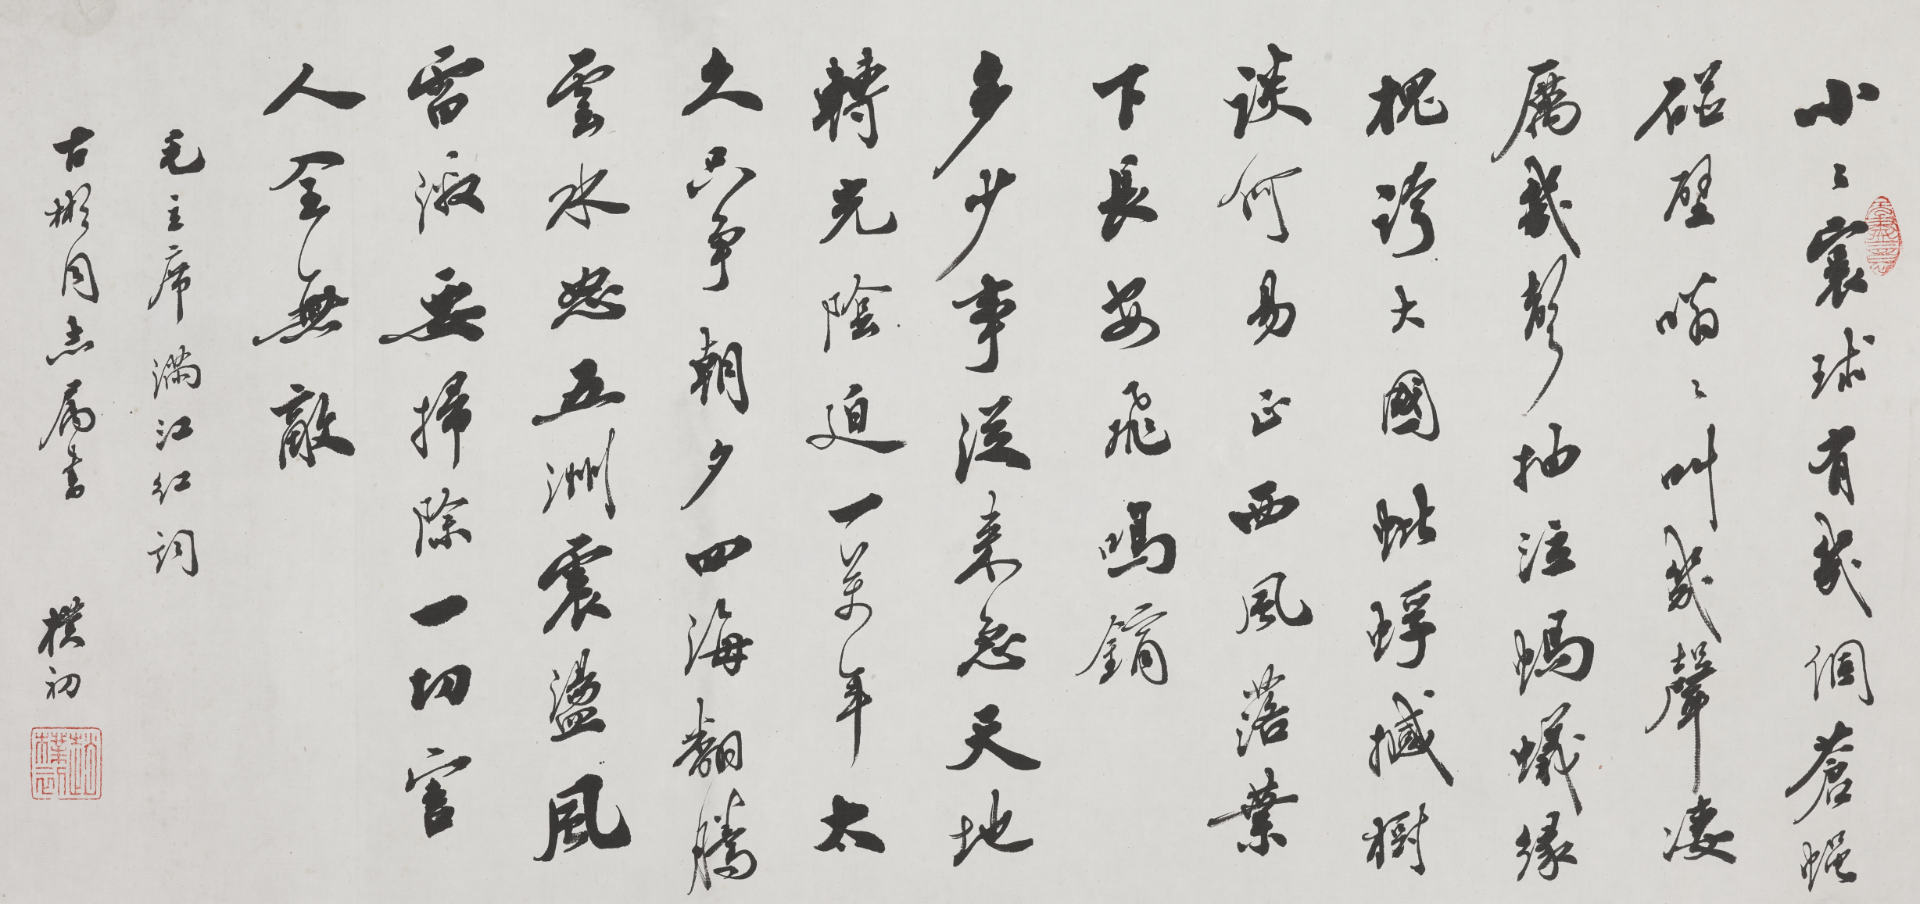 小〻寰球有幾個蒼蠅
碰壁嗡〻叫幾聲淒
厲幾聲抽泣螞蟻緣
槐誇大國蚍蜉撼樹
談何易正西風落葉
下長安飛鳴鏑
多少事從來急天地
轉光陰迫一萬年太
久只爭朝夕四海翻騰
雲水怒五洲震盪風
雷激要掃除一切害
人全無敵
毛主席滿江紅詞
古彬同志属書 樸初
趙樸初